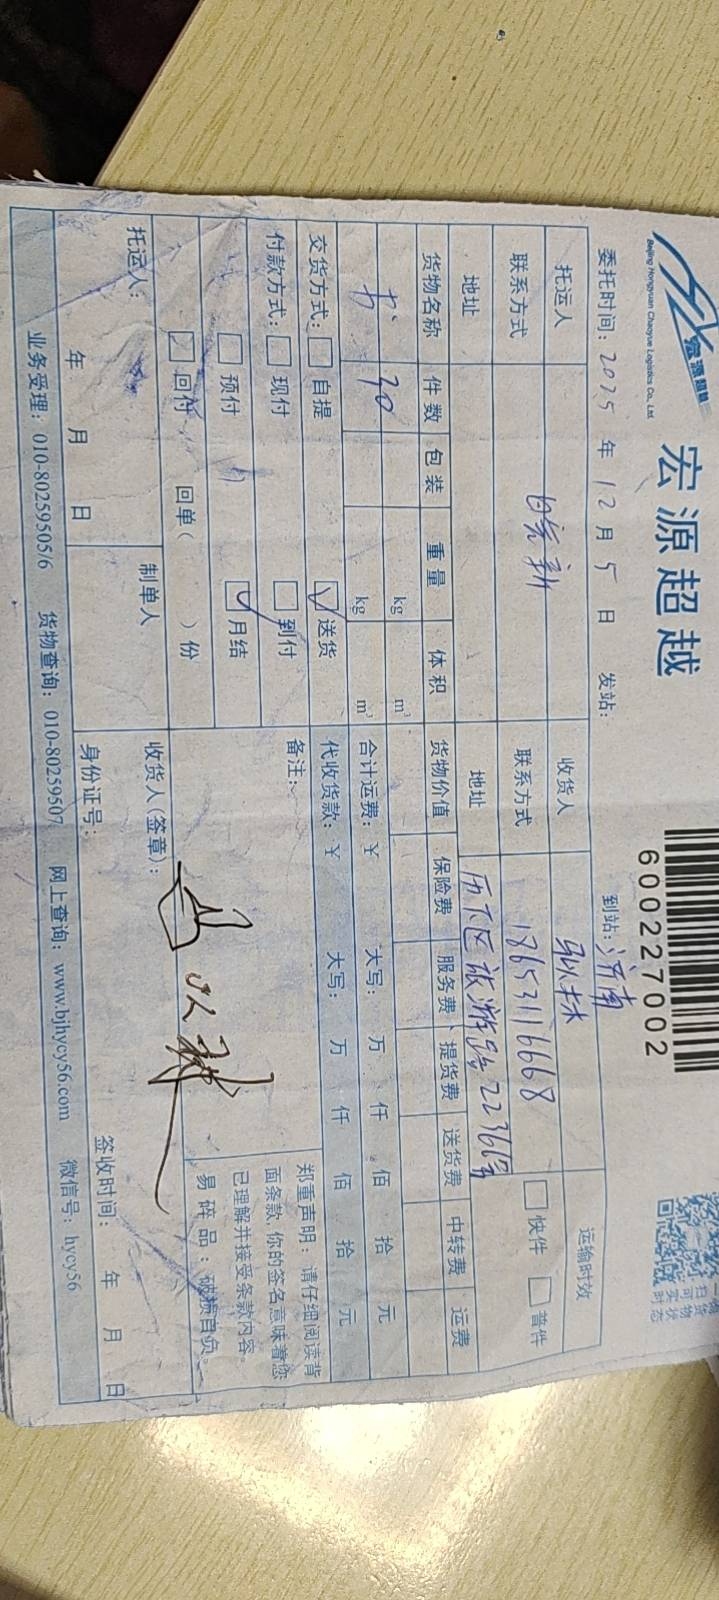 宏源超越
Beijing Hongyuan Chaoyue Logistics Co., Ltd.
宏源超越
600227002
委托时间：2025 年 12 月 5 日 发站： 到站：济南
托运人 收货人 运输时效
联系方式 联系方式 18653116668 快件 普件
地址 地址 历下区旅游路22366号
货物名称 件数 包装 重量 体积 货物价值 保险费 服务费 提货费 送货费 中转费 运费
书 30 kg m³
kg m³ 合计运费：￥ 大写： 万 仟 佰 拾 元
交货方式： 自提 送货 代收货款：￥ 大写： 万 仟 佰 拾 元
付款方式： 现付 到付 备注：
预付 月结
回付 回单（ ）份
郑重声明：请仔细阅读背
面条款，你的签名意味着您
已理解并接受条款内容。
易碎品：破损自负。
托运人： 制单人 收货人（签章）：
年 月 日 身份证号： 签收时间： 年 月 日
业务受理：010-80259505/6 货物查询：010-80259507 网上查询：www.bjhycy56.com 微信号：hycy56